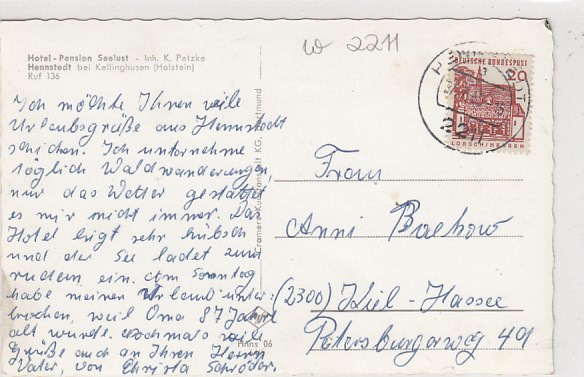 Hotel-Pension Seelust - Inh. K. Petzke
Hennstedt bei Kellinghusen (Holstein)
Ruf 136
W 2211
DEUTSCHE BUNDESPOST
20
LORSCH/HESSEN
2211
Ich möchte Ihnen viele
Urlaubsgrüße aus Hennstedt
schicken. Ich unternehme
täglich Waldwanderungen,
nur das Wetter gestattet
es mir nicht immer. Das
Hotel liegt sehr hübsch
und der See ladet zum
rudern ein. Am Sonntag
habe meinen Urlaub unter:
brochen, weil Oma 87 Jahre
alt wurde. Nochmals viele
Grüße auch an Ihren Herrn
Vater, von Christa Schröder.
Cramers Kunstanstalt KG, Dortmund
Hnns 06
Frau
Anni Bachow
(2300) Kiel-Hassee
Petersburgerweg 49